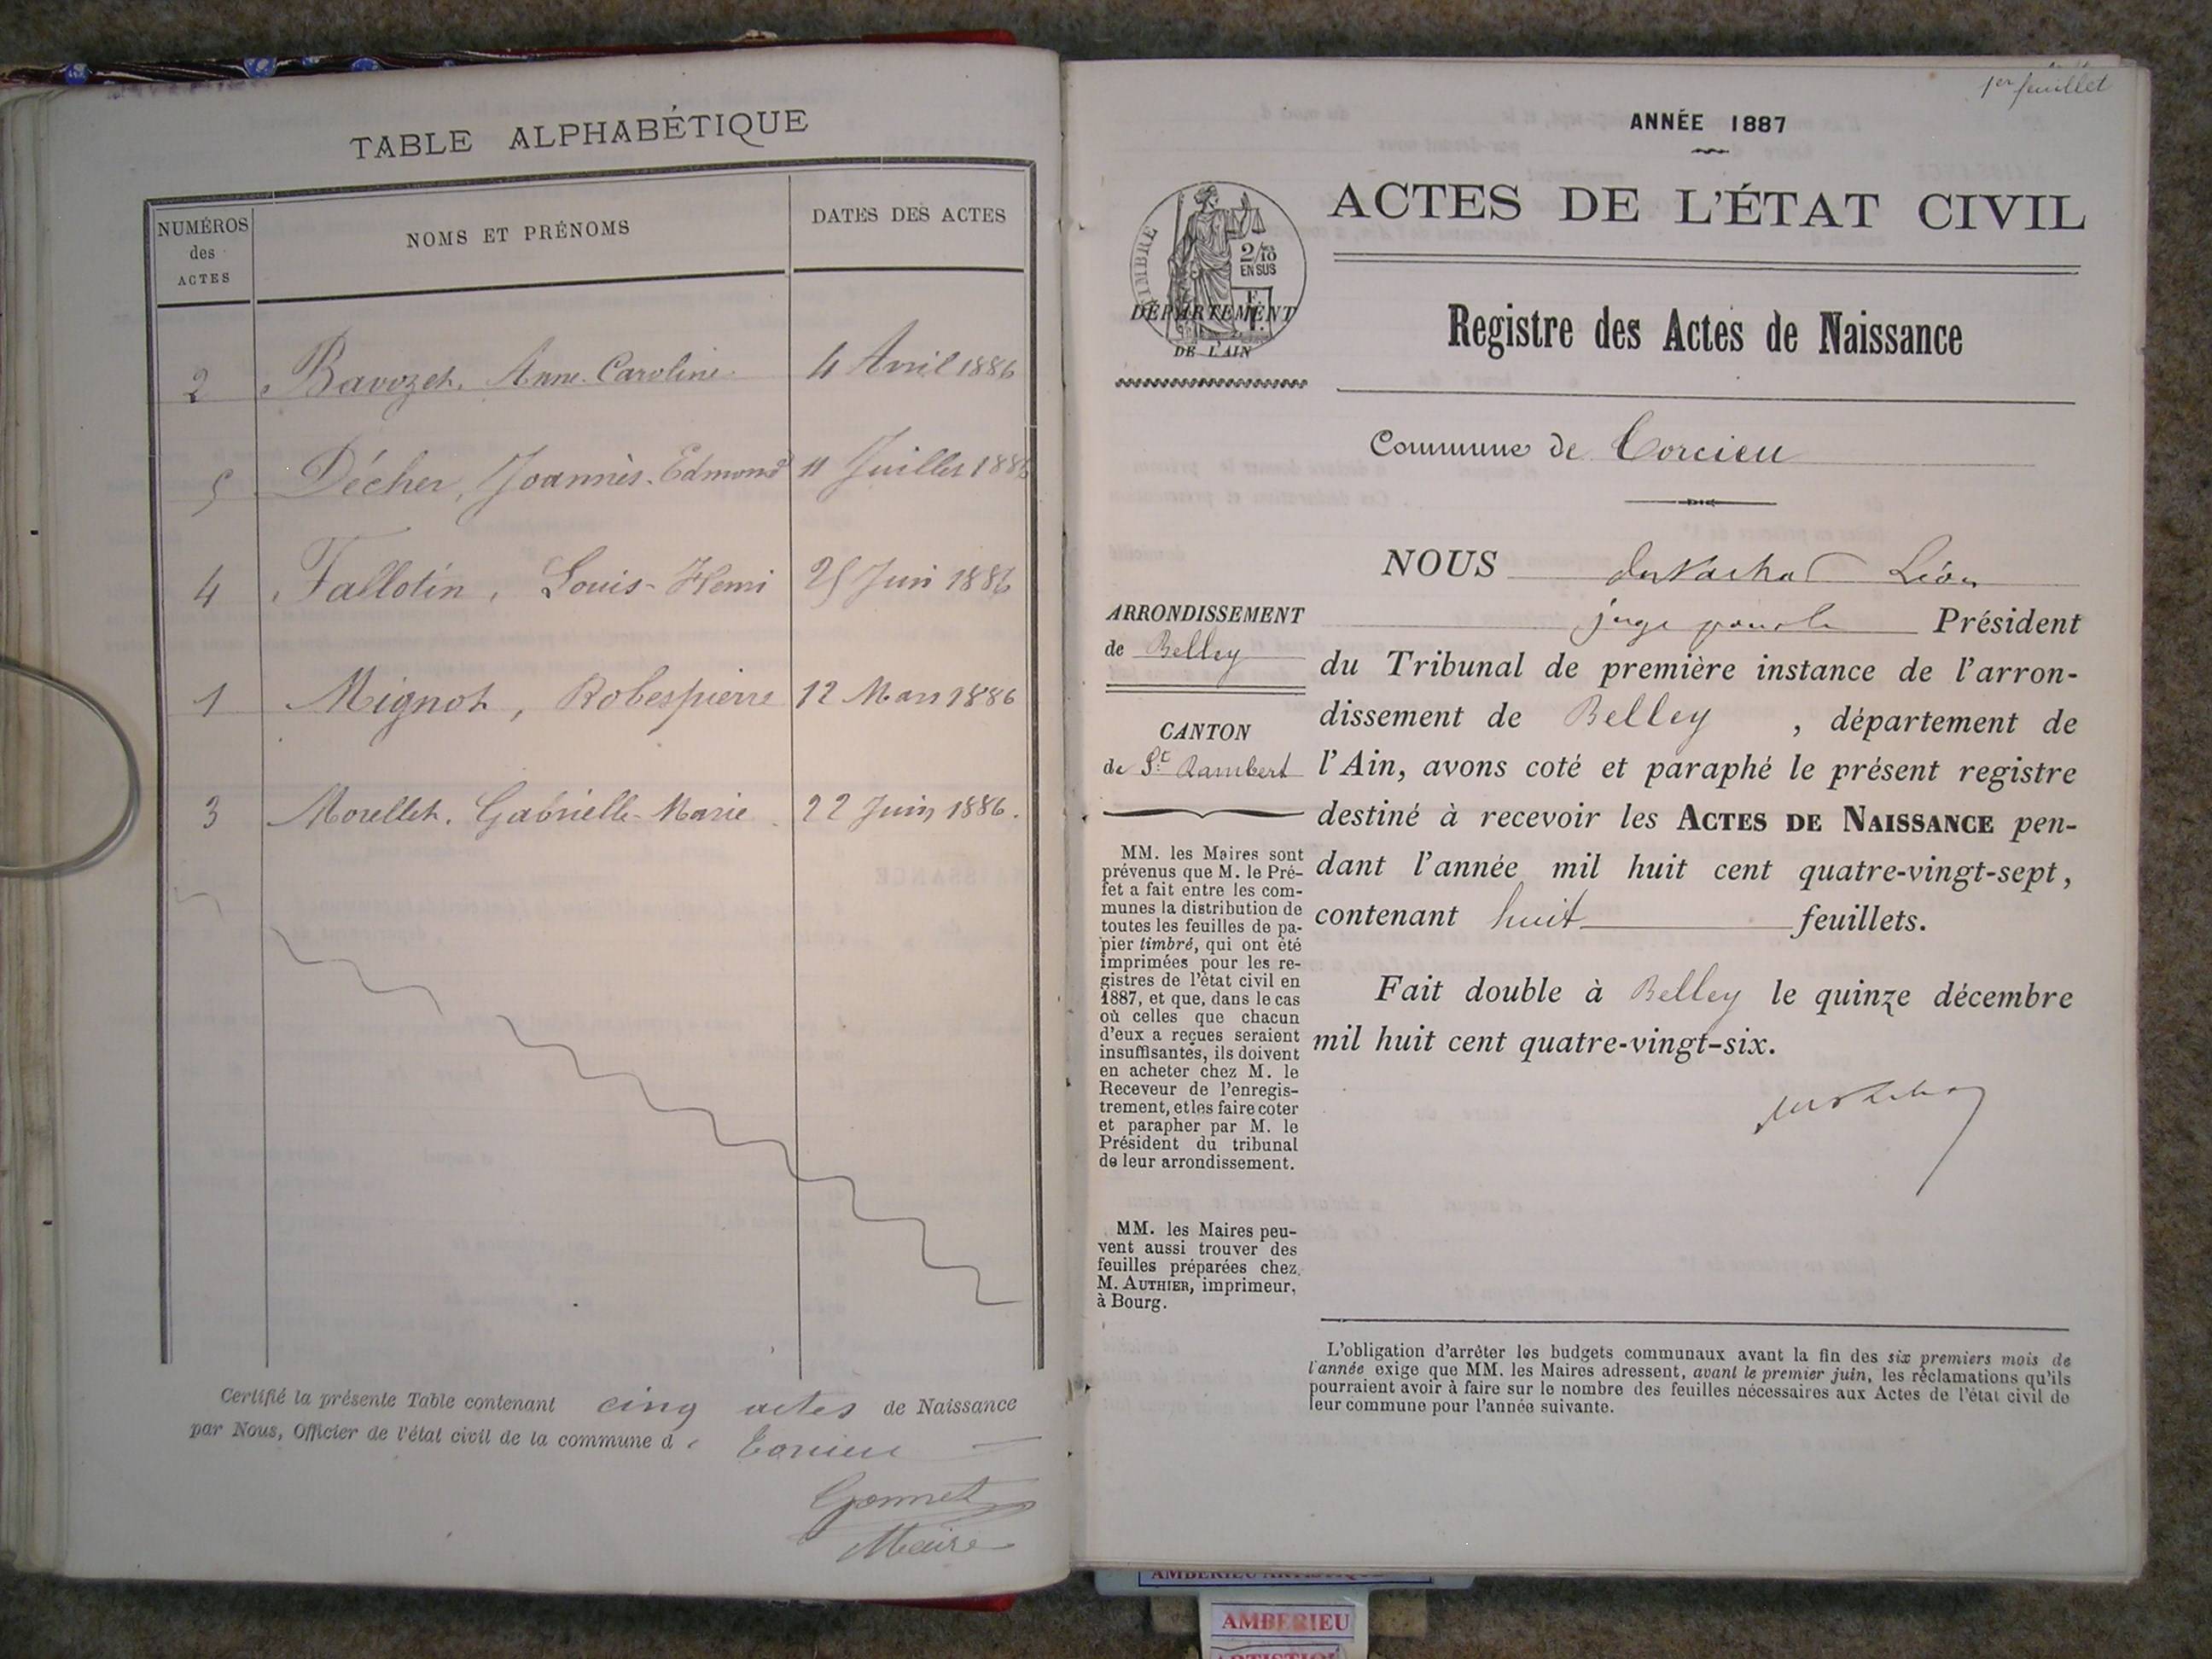 TABLE ALPHABÉTIQUE
NUMÉROS
des
ACTES
NOMS ET PRÉNOMS
DATES DES ACTES
2 Bavozet, Anne Caroline 4 Avril 1886
5 Décher, Joannès-Edmond 11 Juillet 1886
4 Fallotin, Louis-Henri 25 Juin 1886
1 Mignot, Robespierre 12 Mars 1886
3 Morellet, Gabrielle-Marie 22 Juin 1886.
Certifié la présente Table contenant cinq actes de Naissance
par Nous, Officier de l'état civil de la commune de Torcieu
Gonnet
Maire
1er feuillet
ANNÉE 1887
ACTES DE L'ÉTAT CIVIL
TIMBRE
2/10
EN SUS
DÉPARTEMENT
DE L'AIN
Registre des Actes de Naissance
Commune de Torcieu
NOUS Léon
juge pour le Président
du Tribunal de première instance de l'arron-
dissement de Belley, département de
l'Ain, avons coté et paraphé le présent registre
destiné à recevoir les ACTES DE NAISSANCE pen-
dant l'année mil huit cent quatre-vingt-sept,
contenant huit feuillets.
Fait double à Belley le quinze décembre
mil huit cent quatre-vingt-six.
ARRONDISSEMENT
de Belley
CANTON
de St Rambert
MM. les Maires sont
prévenus que M. le Pré-
fet a fait entre les com-
munes la distribution de
toutes les feuilles de pa-
pier timbré, qui ont été
imprimées pour les re-
gistres de l'état civil en
1887, et que, dans le cas
où celles que chacun
d'eux a reçues seraient
insuffisantes, ils doivent
en acheter chez M. le
Receveur de l'enregis-
trement, et les faire coter
et parapher par M. le
Président du tribunal
de leur arrondissement.
MM. les Maires peu-
vent aussi trouver des
feuilles préparées chez
M. AUTHIER, imprimeur,
à Bourg.
L'obligation d'arrêter les budgets communaux avant la fin des six premiers mois de
l'année exige que MM. les Maires adressent, avant le premier juin, les réclamations qu'ils
pourraient avoir à faire sur le nombre des feuilles nécessaires aux Actes de l'état civil de
leur commune pour l'année suivante.
AMBERIEU ARTISTIQUE
AMBERIEU